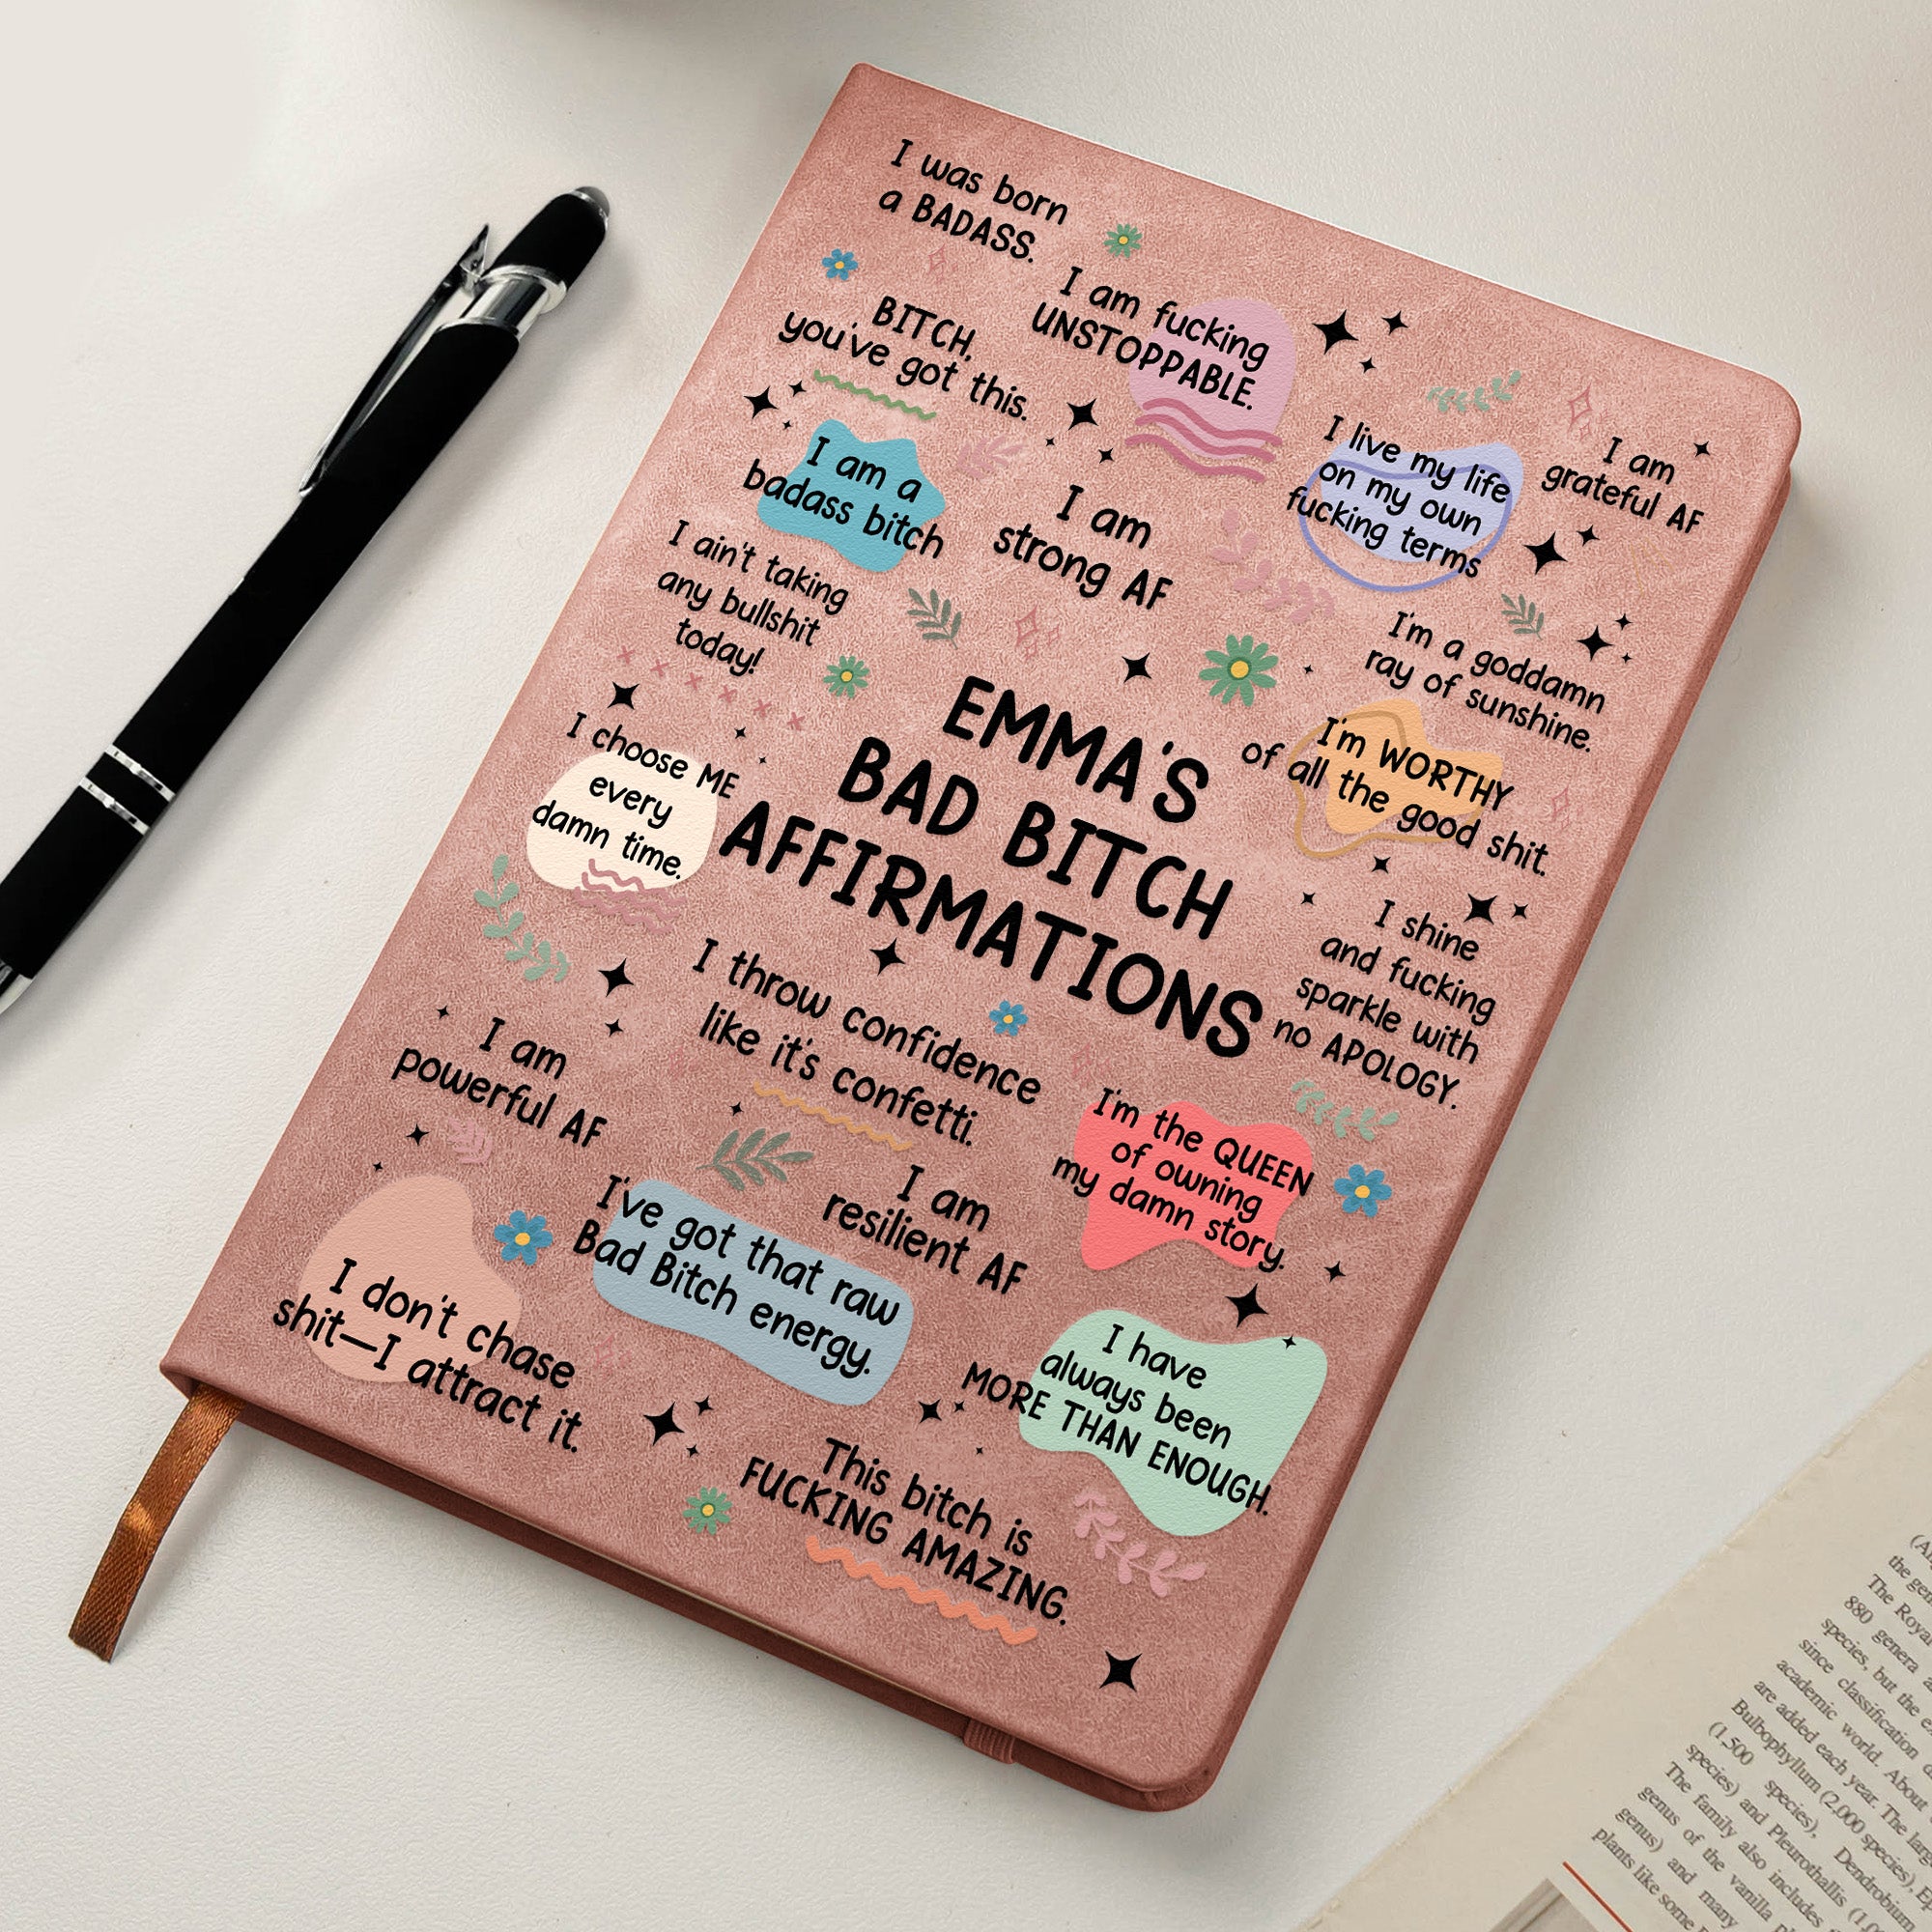 I was born
a BADASS.
I am fucking
UNSTOPPABLE.
BITCH,
you've got this.
I am a
badass bitch
I am
strong AF
I live my life
on my own
fucking terms
I am
grateful AF
I ain't taking
any bullshit
today!
I'm a goddamn
ray of sunshine.
I choose ME
every
damn time.
EMMA'S
BAD BITCH
AFFIRMATIONS
I'm WORTHY
of all the good shit.
I shine
and fucking
sparkle with
no APOLOGY.
I throw confidence
like it's confetti.
I am
powerful AF
I'm the QUEEN
of owning
my damn story.
I am
resilient AF
I've got that raw
Bad Bitch energy.
I don't chase
shit—I attract it.
I have
always been
MORE THAN ENOUGH.
This bitch is
FUCKING AMAZING.
the
The Royal
880 genera
species, but the
since classification
academic world. About
are added each year. The
Bulbophyllum (2,000 species),
(1,500 species), Dendrobium
species) and Pleurothallis
The family also includes
genus of the vanilla
genus) and many
plants like some